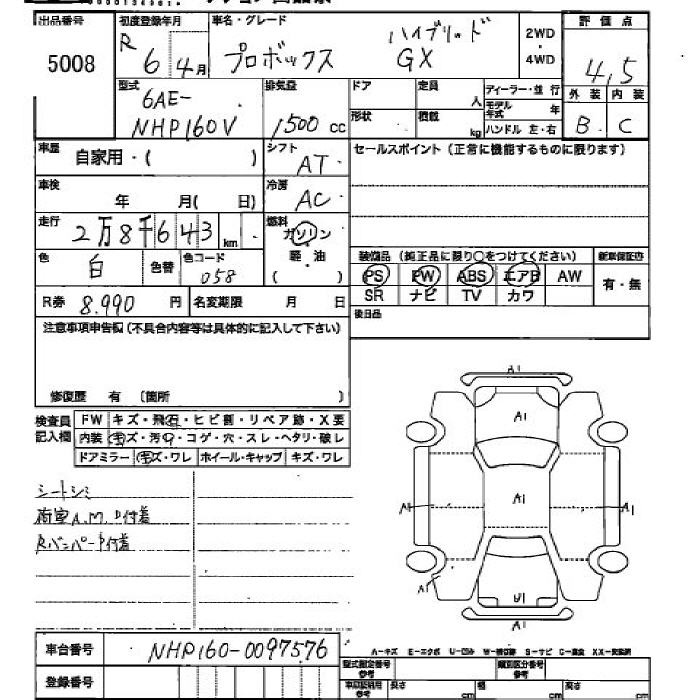 出品番号 初度登録年月 車名・グレード 評価点
5008 R 6 4月 プロボックス ハイブリッド GX 2WD・4WD 4.5
外装 内装
B C
型式 6AE-NHP160V 排気量 1500 cc ドア 定員 人 ディーラー・並行
形状 積載 kg モデル年式 年
ハンドル 左・右
車歴 自家用・( ) シフト AT セールスポイント(正常に機能するものに限ります)
車検 年 月( 日) 冷房 AC
走行 2万8千643 km 燃料 ガソリン
軽・油
( )
色 白 色替 色コード 058
装備品(純正品に限り○をつけてください) 新車保証書
PS PW ABS エアB AW 有・無
SR ナビ TV カワ
R券 8.990 円 名変期限 月 日
後日品
注意事項申告欄(不具合内容等は具体的に記入して下さい)
修復歴 有 〔箇所 〕
検査員記入欄 FW キズ・飛石・ヒビ割・リペア跡・X要
内装 キズ・汚れ・コゲ・穴・スレ・ヘタリ・破レ
ドアミラー キズ・ワレ ホイール・キャップ キズ・ワレ
シートシミ
荷室A.M.P付着
RバンパーP付着
A1
A1
A1
A1
A1
A1
A1
A1
車台番号 NHP160-0097576
登録番号
A-キズ E-エクボ U-凹み W-補修跡 S-サビ C-腐食 XX-交換済
型式指定番号 参考 類別区分番号 参考
長さ cm 幅 cm 高さ cm